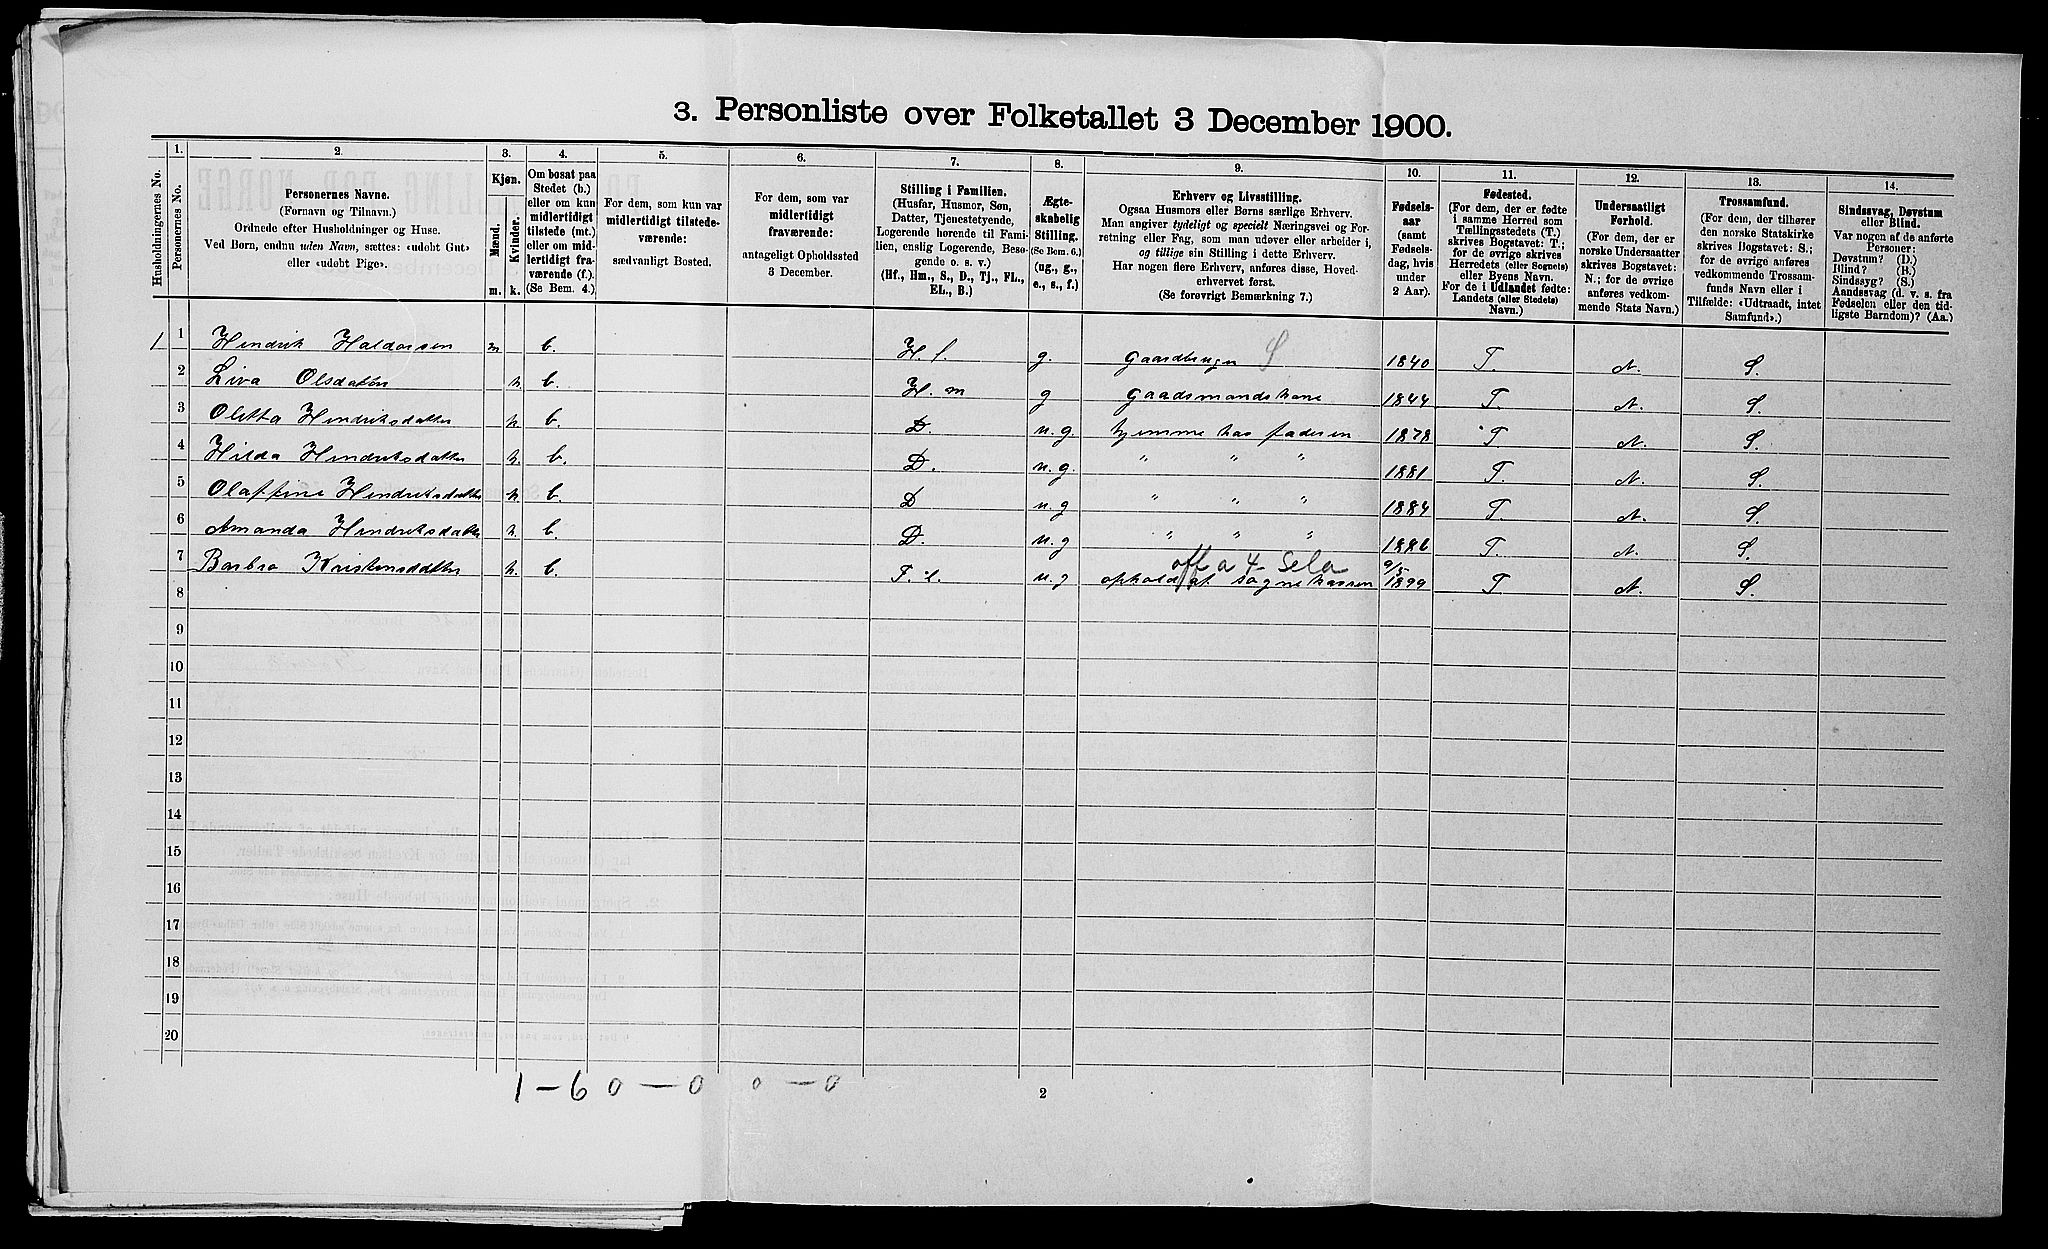 3. Personliste over Folketallet 3 December 1900.
Husholdningernes No.
1. Personernes No.
2. Personernes Navne.
(Fornavn og Tilnavn.)
Ordnede efter Husholdninger og Huse.
Ved Børn, endnu uden Navn, sættes: «udøbt Gut»
eller «udøbt Pige».
3. Kjøn.
Mænd. m.
Kvinder. k.
4.
Om bosat paa
Stedet (b.)
eller om kun
midlertidigt
tilstede (mt.)
eller om mid-
lertidigt fra-
værende (f.).
(Se Bem. 4.)
5.
For dem, som kun var
midlertidigt tilstede-
værende:
sædvanligt Bosted.
6.
For dem, som var
midlertidigt
fraværende:
antageligt Opholdssted
3 December.
7.
Stilling i Familien.
(Husfar, Husmor, Søn,
Datter, Tjenestetyende,
Logerende hørende til Fami-
lien, enslig Logerende, Besø-
gende o. s. v.)
(Hf., Hm., S., D., Tj., FL.,
EL., B.)
8.
Ægte-
skabelig
Stilling.
(Se Bem. 6.)
(ug., g.,
e., s., f.)
9.
Erhverv og Livsstilling.
Ogsaa Husmors eller Børns særlige Erhverv.
Man angiver tydeligt og specielt Næringsvei og For-
retning eller Fag, som man udøver eller arbeider i,
og tillige sin Stilling i dette Erhverv.
Har nogen flere Erhverv, anføres disse, Hoved-
erhvervet først.
(Se forøvrigt Bemærkning 7.)
10.
Fødsels-
aar
(samt
Fødsels-
dag, hvis
under
2 Aar).
11.
Fødested.
(For dem, der er fødte
i samme Herred som
Tællingsstedets (T.)
skrives Bogstavet: T.;
for de øvrige skrives
Herredets (eller Sognets)
eller Byens Navn.
For de i Udlandet fødte:
Landets (eller Stedets)
Navn.)
12.
Undersaatligt
Forhold.
(For dem, der er
norske Undersaatter
skrives Bogstavet:
N.; for de øvrige
anføres vedkom-
mende Stats Navn.)
13.
Trossamfund.
(For dem, der tilhører
den norske Statskirke
skrives Bogstavet: S.;
for de øvrige anføres
vedkommende Trossam-
funds Navn eller i
Tilfælde: «Udtraadt, intet
Samfund».)
14.
Sindssvag, Døvstum
eller Blind.
Var nogen af de anførte
Personer:
Døvstum? (D.)
Blind? (B.)
Sindssyg? (S.)
Aandssvag (d. v. s. fra
Fødselen eller den tid-
ligste Barndom)? (Aa.)
1 1 Hendrik Haldorsen m b. H. f. g. gaardbruger S 1840 T. N. S.
2 Liva Olsdatter k. b. H. m g gaardsmandskone 1844 T. N. S.
3 Olitta Hendriksdatter k. b. D. u. g hjemme hos faderen 1878 T N. S.
4 Hilda Hendriksdatter k. b. D. u. g. " " " 1881 T. N. S.
5 Olaffine Hendriksdatter k. b. D u. g " " " 1884 T. N. S.
6 Amanda Hendriksdatter k. b. D. u. g " " " 1886 T. N. S.
off a 4 Sela
7 Barbro Kristensdatter k. b. F. l. u. g ophold af sognekassen 9/5 1899 T N. S.
8
9
10
11
12
13
14
15
16
17
18
19
20
1 – 6 0 – 0 0 – 0
2